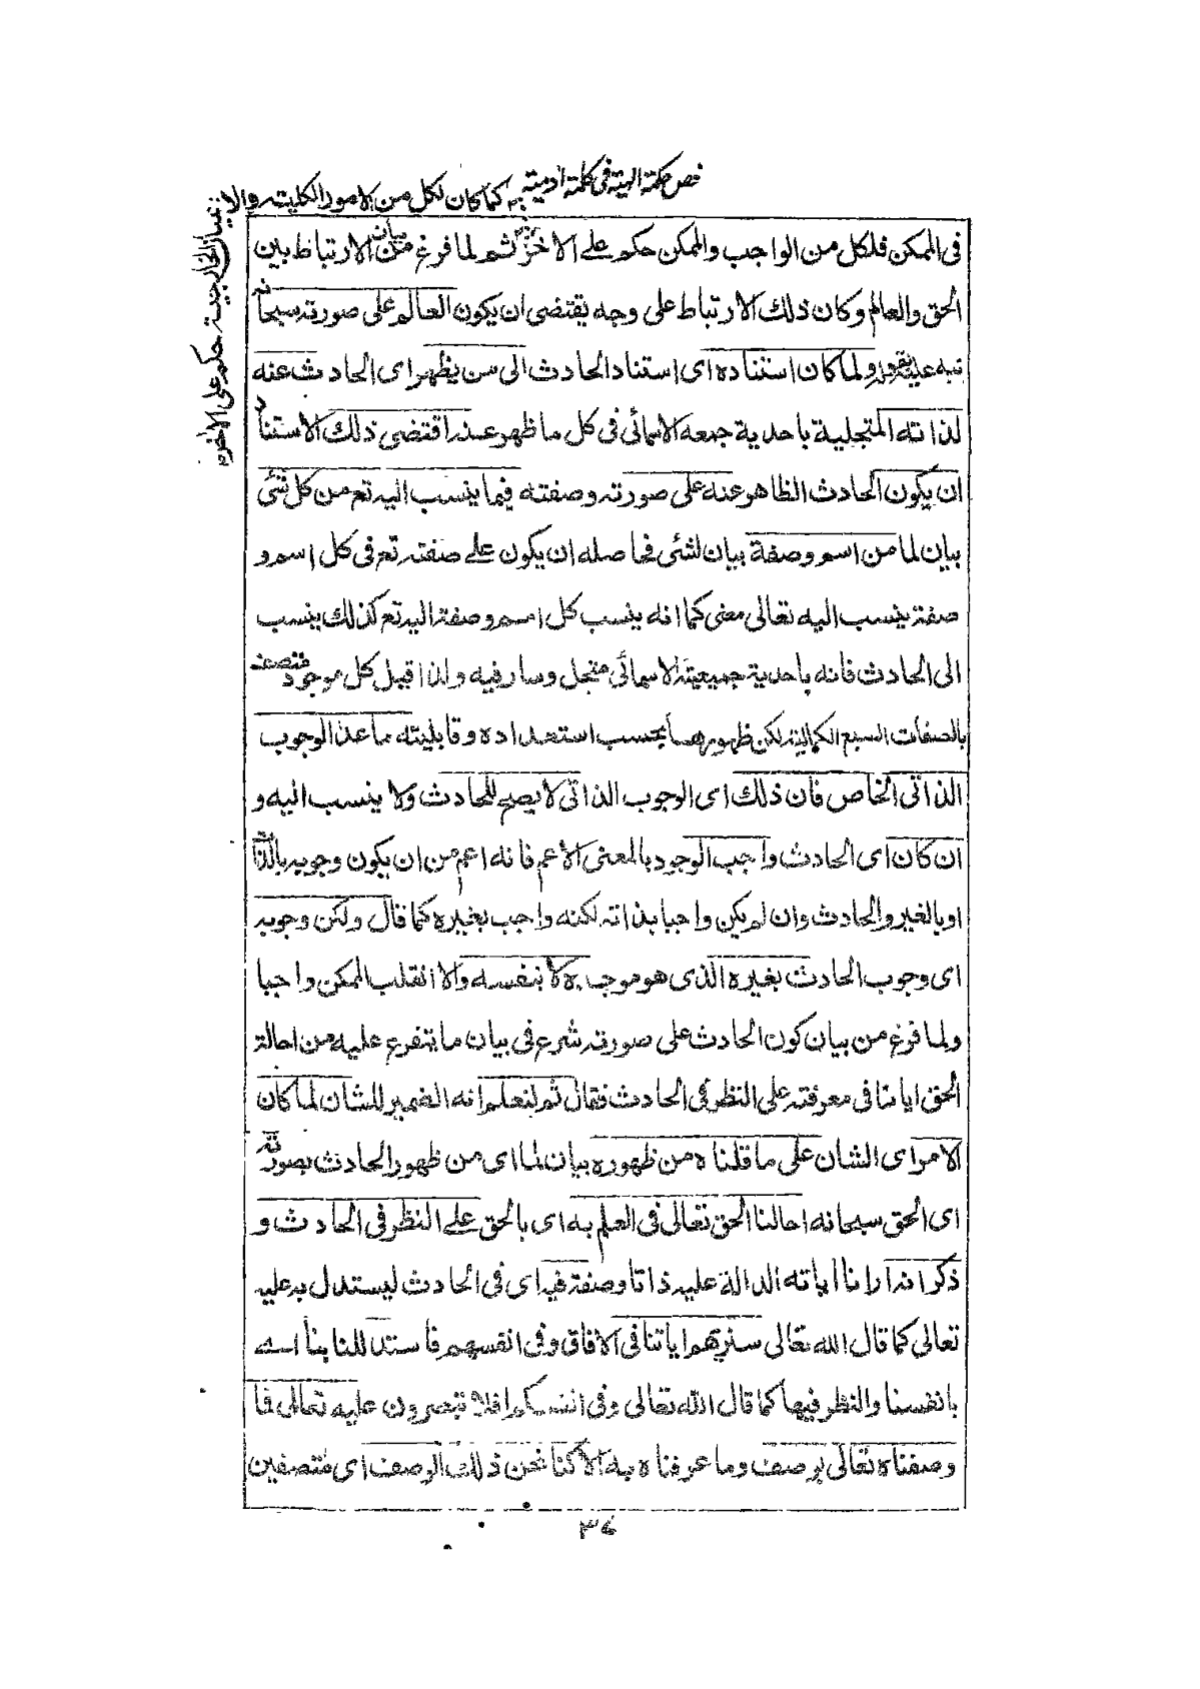 فص حكمة الهية فى كلمة ادمية
كما كان لكل من الامور الكلية والا
شياء الخارجية حكم على الاخر ١٢
فى الممكن فلكل من الواجب والممكن حكم على الاخر ثم لما فرغ من بيان الارتباط بين
الحق والعالم وكان ذلك الارتباط على وجه يقتضى ان يكون العالم على صورته سبحانه
نبه عليه بقوله ولما كان استناده اى استناد الحادث الى من يظهر اى الحادث عنه
لذاته المتجلية باحدية جمعه الاسمائى فى كل ما ظهر عنه اقتضى ذلك الاستناد
ان يكون الحادث الظاهر عنه على صورته وصفته فيما ينسب اليه تع من كل شئ
بيان لما من اسم وصفة بيان لشئ فحاصله ان يكون على صفته تع فى كل اسم و
صفة ينسب اليه تعالى معنى كما انه ينسب كل اسم وصفة اليه تع كذلك ينسب
الى الحادث فانه باحدية جميعيته الاسمائى متجل وسار فيه ولذا قبل كل موجود متصف
بالصفات السبع الكمالية لكن ظهورها بحسب استعداده وقابليته ما عدا الوجوب
الذاتى الخاص فان ذلك اى الوجوب الذاتى لا يصح للحادث ولا ينسب اليه و
ان كان اى الحادث واجب الوجود بالمعنى الاعم فانه اعم من ان يكون وجوبه بالذات
او بالغير والحادث وان لم يكن واجبا بذاته لكنه واجب بغيره كما قال ولكن وجوبه
اى وجوب الحادث بغيره الذى هو موجبه لا بنفسه والا انقلب الممكن واجبا
ولما فرغ من بيان كون الحادث على صورته شرع فى بيان ما يتفرع عليه من احالة
الحق ايانا فى معرفته على النظر فى الحادث فقال ثم لنعلم انه الضمير للشان لما كان
الامر اى الشان على ما قلناه من ظهوره بيان لما اى من ظهور الحادث بصورته
اى الحق سبحانه احالنا الحق تعالى فى العلم به اى بالحق على النظر فى الحادث و
ذكر انه ارانا اياته الدالة عليه ذاتا وصفة فيه اى فى الحادث ليستدل به عليه
تعالى كما قال الله تعالى سنريهم اياتنا فى الافاق وفى انفسهم فاستدللنا بنا اى
بانفسنا والنظر فيها كما قال الله تعالى وفى انفسكم افلا تبصرون عليه تعالى فما
وصفناه تعالى بوصف وما عرفناه به الا كنا نحن ذلك الوصف اى متصفين
٣٤